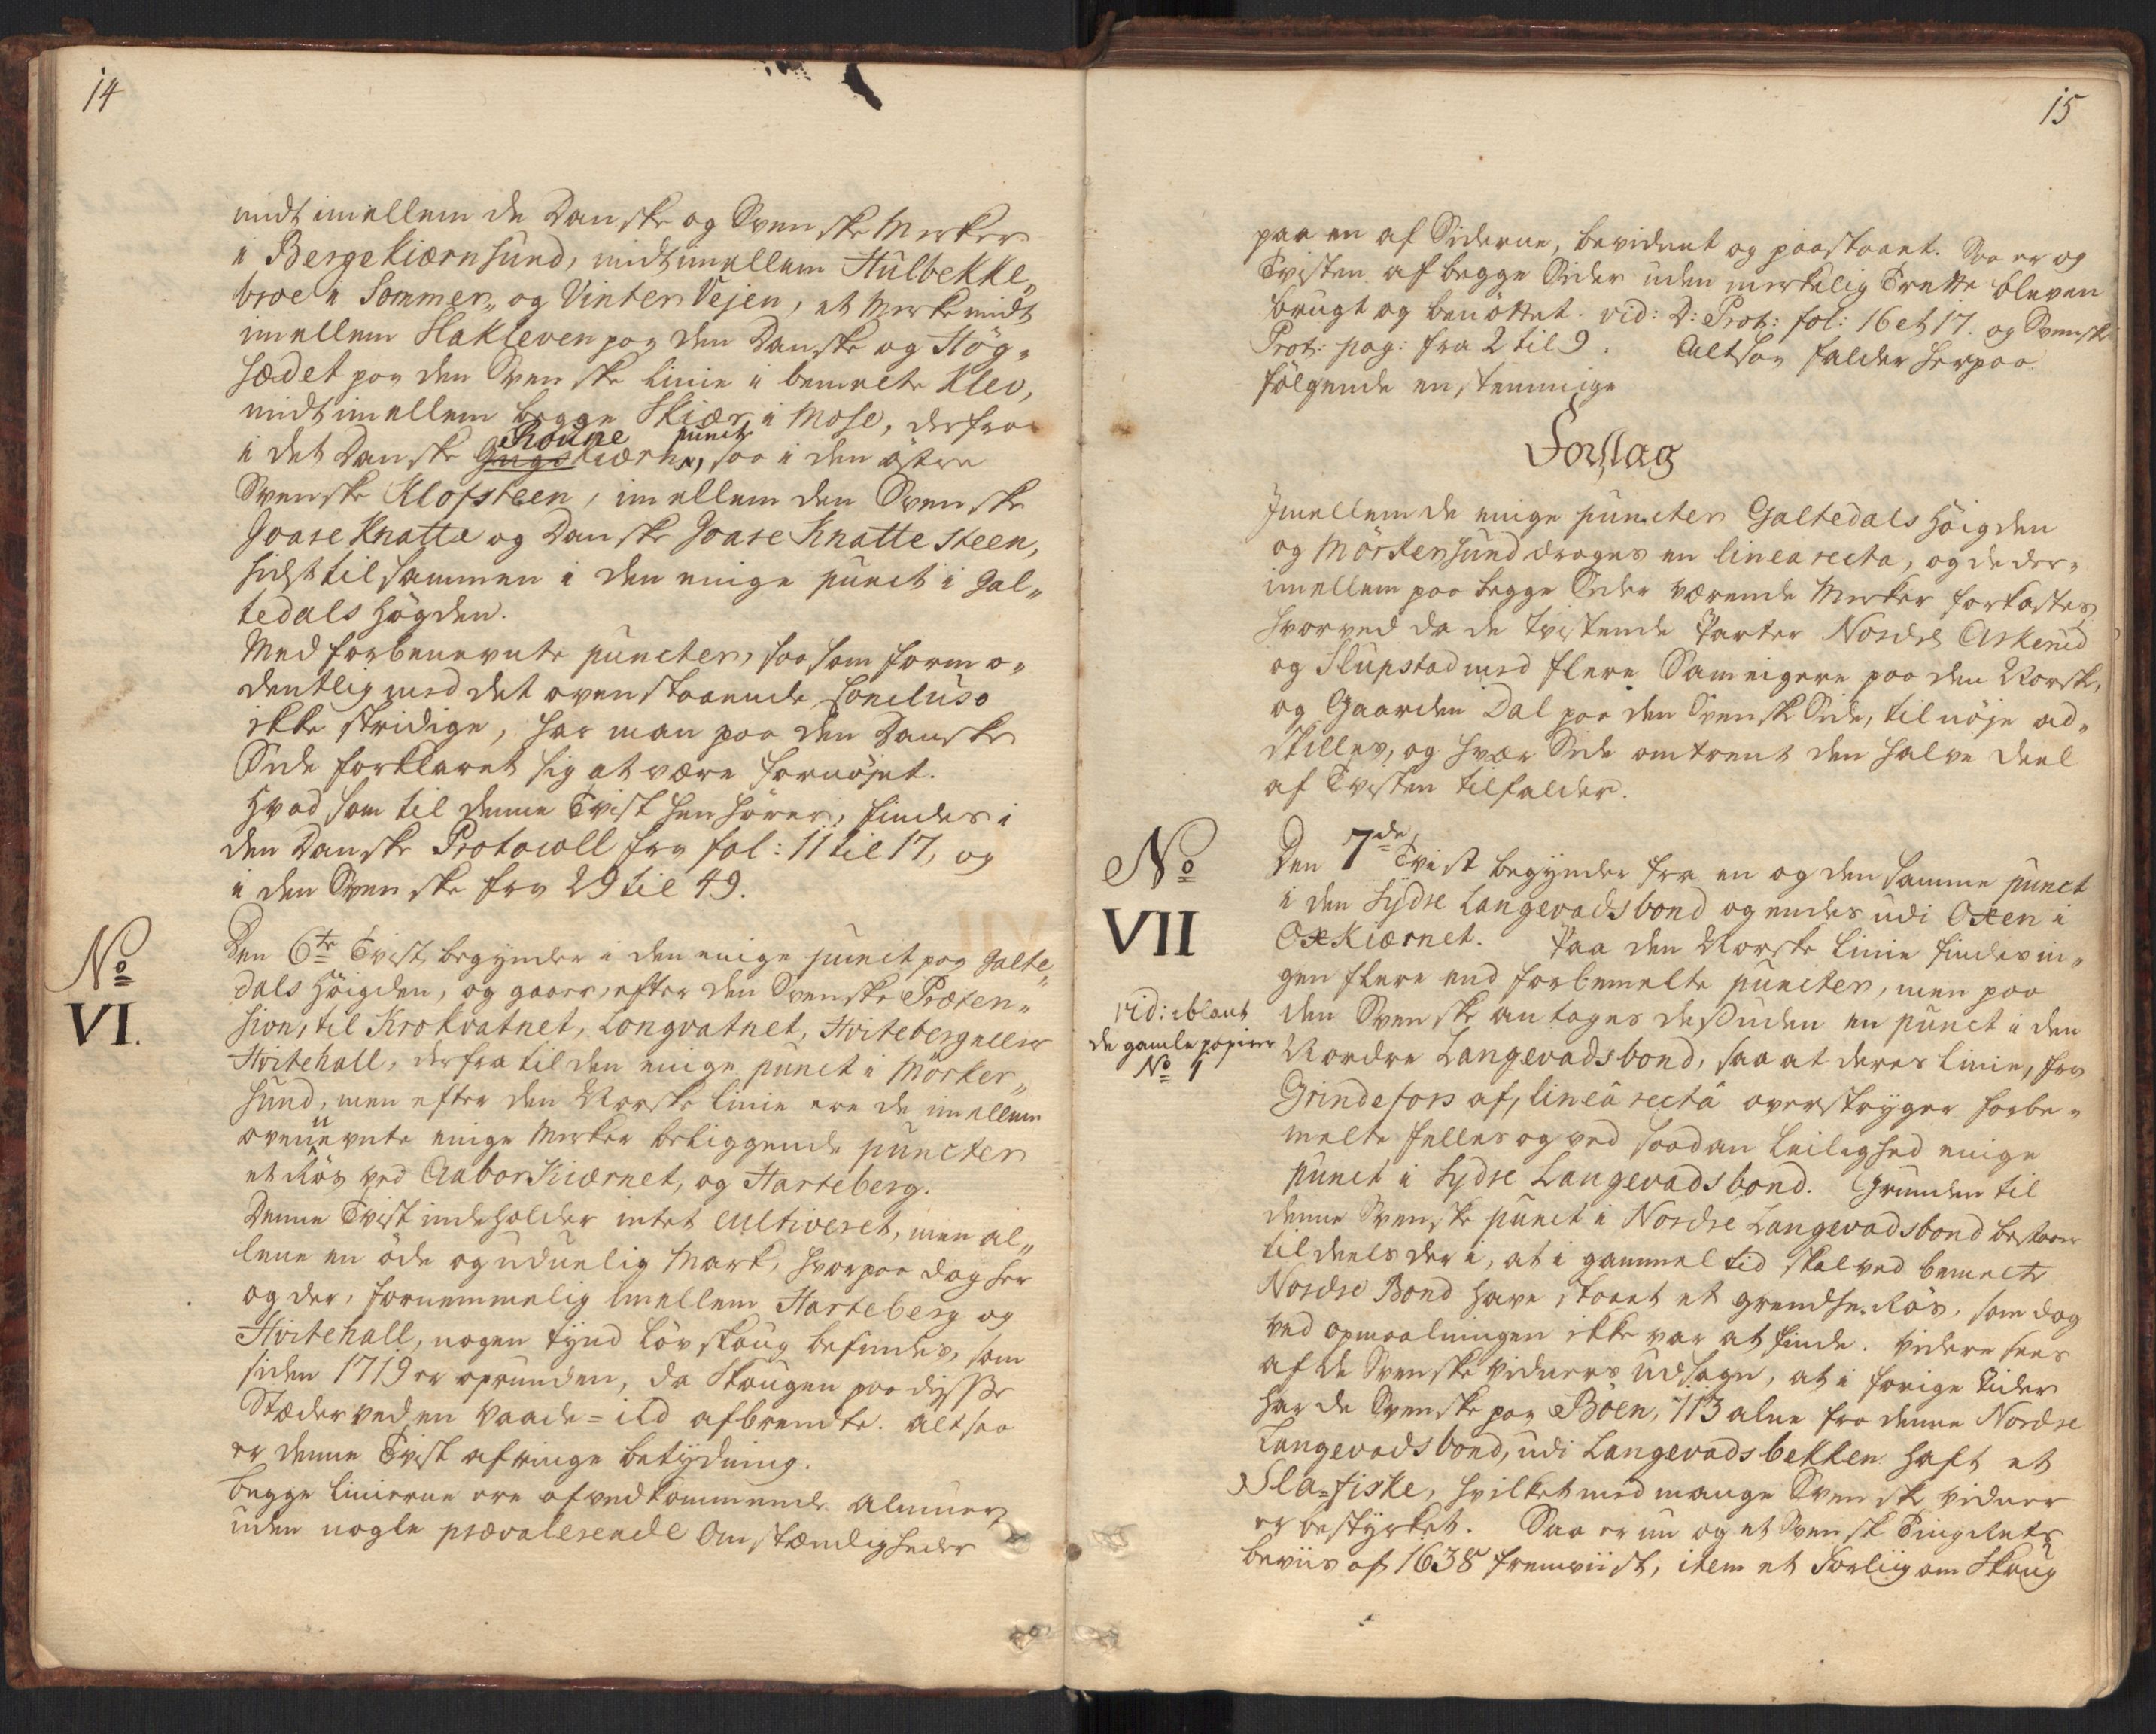 14
midt imellem de Danske og Svenske Merker
i Bergekiærnsund, midt imellem Hulbekke„
broe i Sommer„ og Vinter Vejen, et Merke midt
imellem Hakleven paa den Danske og Hög„
sædet paa den Svenske Linie i bemelte Klev,
midt imellem begge Skiær i Mose, derfra
Roune punct
i det Danske Gugs kiærn, saa i den östre
Svenske Klofsteen, imellem den Svenske
Goase Knatte og Danske Goase Knatte Steen,
sidst tilsammen i den enige punct i Gal„
tedals Högden.
Med forbenevnte puncter, saasom formo„
dentlig med det ovenstaaende Concluso
ikke stridige, har man paa den Danske
Side forklaret sig at være fornöjet.
Hvad som til denne Tvist henhörer, findes i
den Danske Protocoll fra fol: 11 til 17, og
i den Svenske fra 29 til 49.
No
VI.
Den 6te Tvist begynder i den enige punct paa Galte„
dals Höigden, og gaaer, efter den Svenske Præten„
sion, til Krokvatnet, Longvatnet, Hviteberg eller
Hvitehall, derfra til den enige punct i Mörker„
sund, men efter den Norske Linie ere de imellem
ovennevnte enige Merker beliggende puncter
et Rös ved Aaborkiærnet, og Harteberg.
Denne Tvist indeholder intet cultiveret, men al„
lene en öde og uduelig Mark, hvorpaa dog her
og der, fornemmelig imellem Harteberg og
Hvitehall, nogen tynd Lövskoug befindes, som
siden 1719 er oprunden, da Skougen paa disse
Stæder ved en Vaade=ild afbrendte. Altsaa
er denne Tvist af ringe betydning.
Begge Linierne ere af vedkommende Almuer,
uden nogle prævalerende Omstændigheder
15
paa en af Siderne, bevidnet og paastaaet. Saa er og
Tvisten af begge Sider uden merkelig Trette bleven
brugt og benöttet. vid: D: Prot: fol: 16 et 17. og Svenske
Prot: pag: fra 2 til 9. Altsaa falder herpaa
fölgende enstemmige
Forslag
Imellem de enige puncter Galtedals Höigden
og Mörkersund drages en linea recta, og de der„
imellem paa begge Sider værende Merker forkastes,
hvorved da de tvistende Parter Nordre Askerud
og Slupstad med flere Sameigere paa den Norske,
og Gaarden Dal paa den Svenske Side, til nöje ad„
skilles, og hver Side omtrent den halve Deel
af Tvisten tilfalder.
No
VII
Den 7de Tvist begynder fra en og den samme punct
i den Sydre Langevadsbond og endes udi Oxen i
Oxkiærnet. Paa den Norske Linie findes in„
gen flere end forbemelte puncter, men paa
vid: iblant
de gamle papirer
No 1
den Svenske antages desuden en punct i den
Nordre Langevadsbond, saa at deres Linie, fra
Grindefors af, lineâ rectâ overstryger forbe„
melte felles og ved saadan Leilighed enige
punct i Sydre Langevadsbond. Grunden til
denne Svenske punct i Nordre Langevadsbond bestaaer
til deels deri, at i gammel tid skal ved bemelte
Nordre Bond have staaet et grendse-Rös, som dog
ved opmaalningen ikke var at finde. Videre sees
af de Svenske vidners Udsagn, at i forige Tider
har de Svenske paa Böen, 113 alne fra denne Nordre
Langevadsbond, udi Langevadsbekken haft et
Sla=fiske, hvilket med mange Svenske vidner
er bestyrket. Saa er nu og et Svensk Tingsrets
beviis af 1638 fremviist, item et Forliig om Skoug